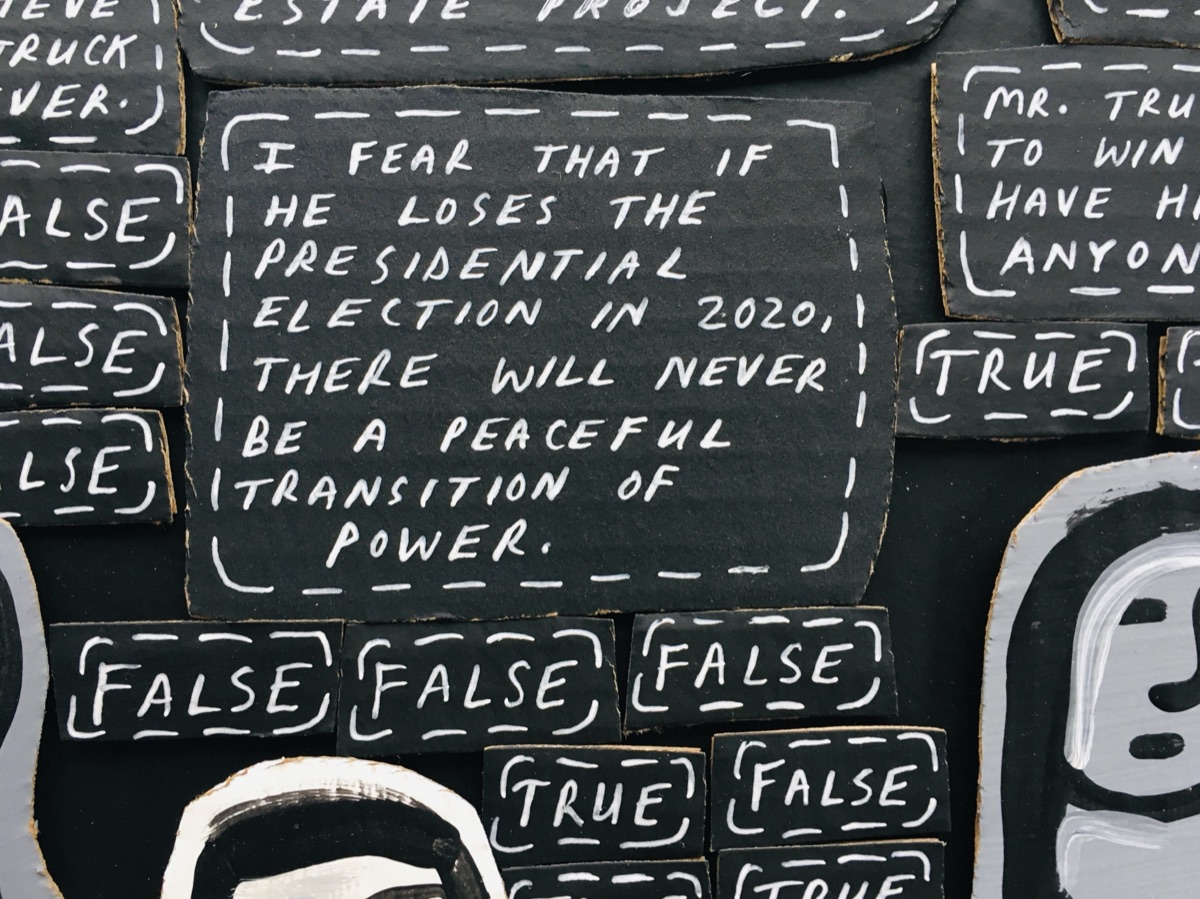 ESTATE PROJECT.
TRUCK
I FEAR THAT IF
HE LOSES THE
PRESIDENTIAL
ELECTION IN 2020,
THERE WILL NEVER
BE A PEACEFUL
TRANSITION OF
POWER.
MR.
TO WIN
HAVE
TRUE
FALSE
FALSE
FALSE
TRUE
FALSE
TRUE